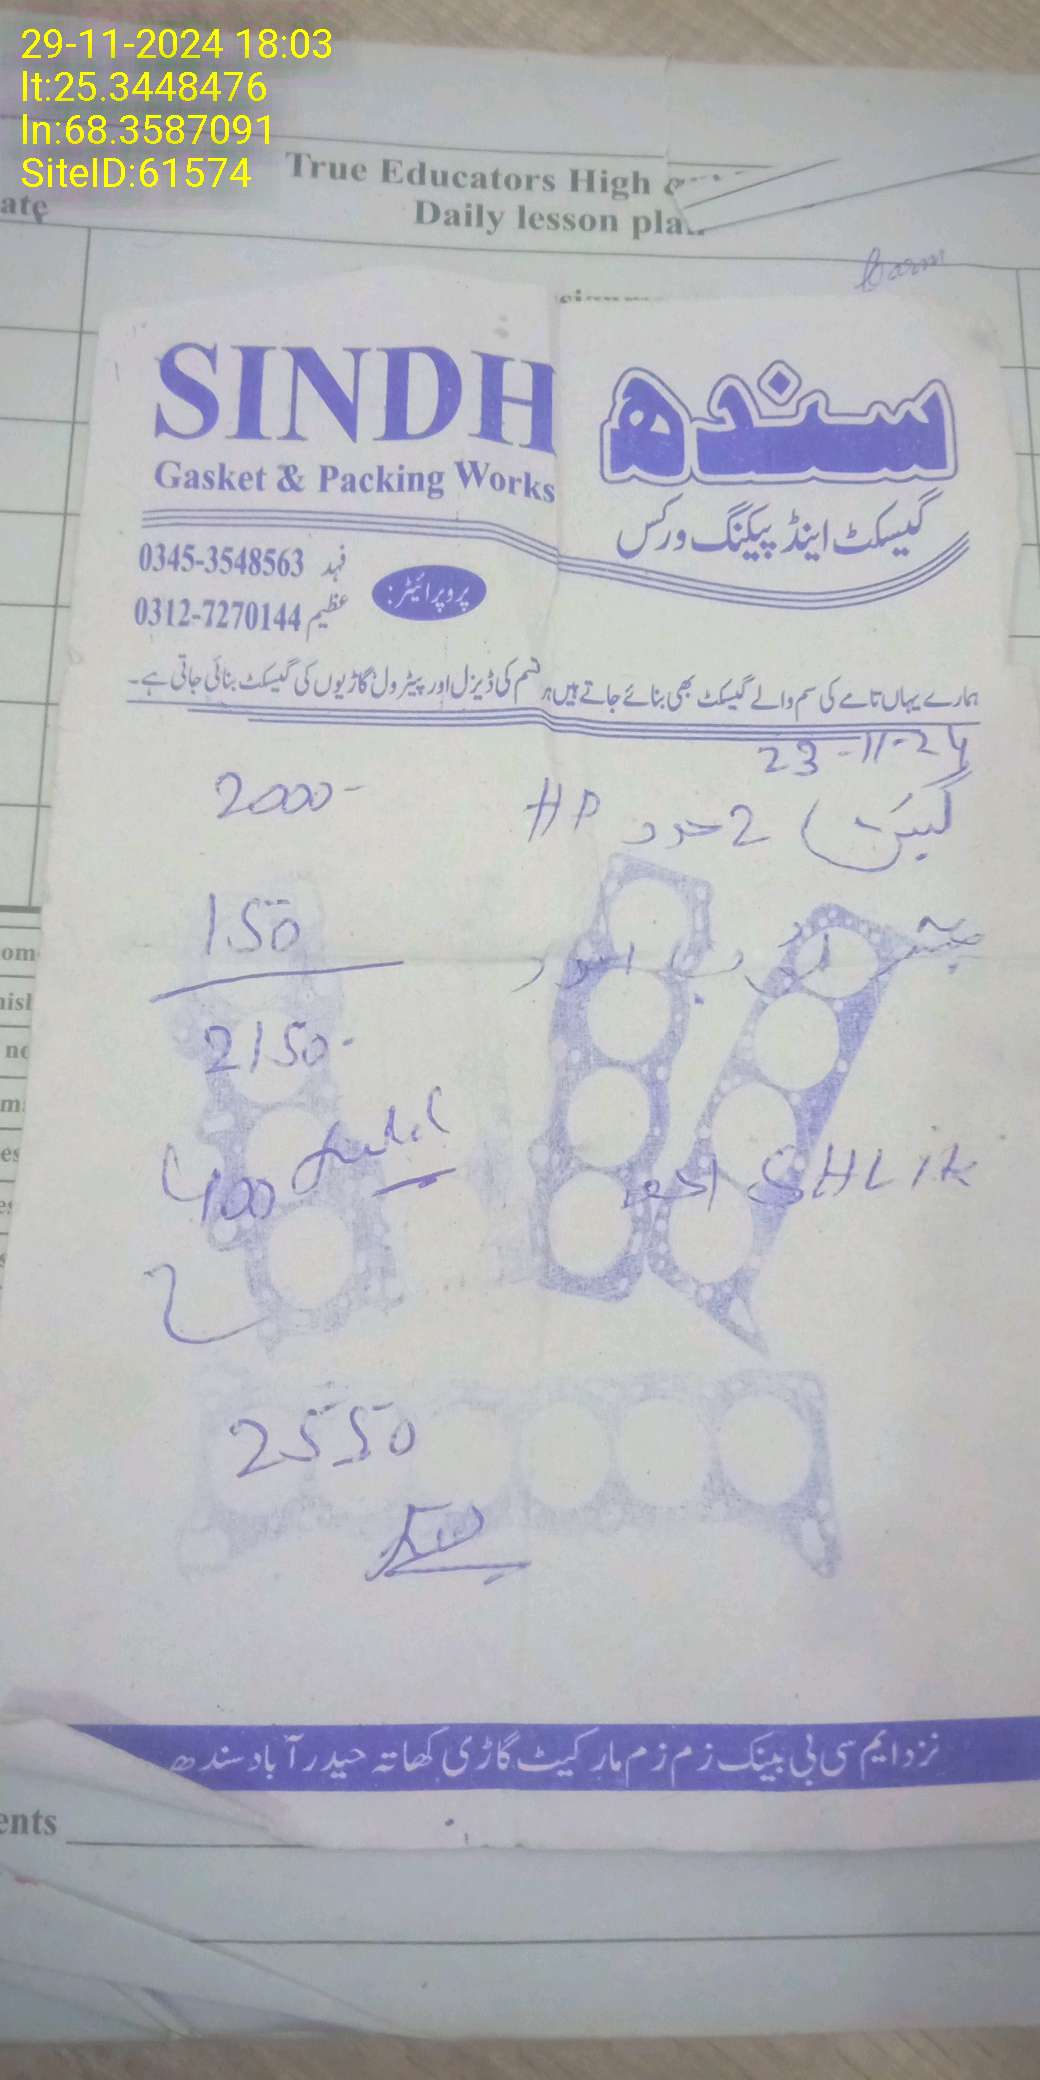 29-11-2024 18:03
lt:25.3448476
ln:68.3587091
SiteID:61574
True Educators High
Daily lesson plan
SINDH
Gasket & Packing Works
سندھ
گیسکٹ اینڈ پیکنگ ورکس
پروپرائیٹر:
فہد 0345-3548563
عظیم 0312-7270144
ہمارے یہاں تامے کی سم والے گیسکٹ بھی بنائے جاتے ہیں ہر قسم کی ڈیزل اور پیٹرول گاڑیوں کی گیسکٹ بنائی جاتی ہے۔
23-11-24
2 عدد HP 2000-
150
2150-
SHLIK
400
2550
نزد ایم سی بی بینک زم زم مارکیٹ گاڑی کھاتہ حیدر آباد سندھ